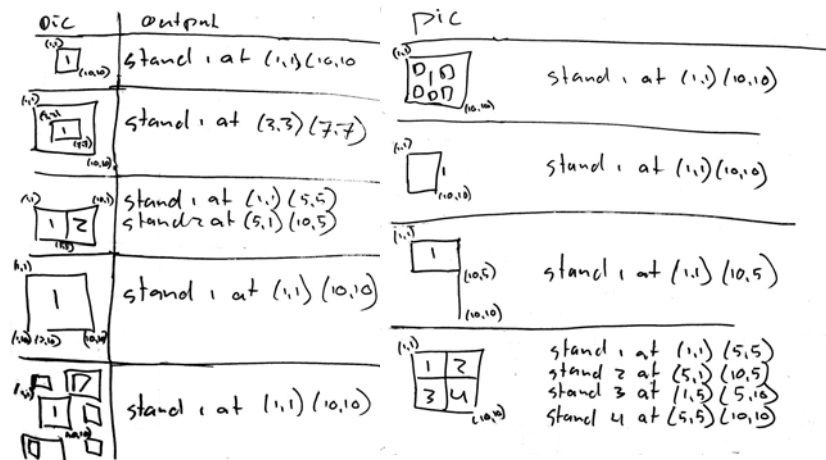 pic output
(1,1)
1
(10,10)
stand 1 at (1,1)(10,10
(1,1)
(3,3)
1
(7,7)
(10,10)
stand 1 at (3,3)(7,7)
(1,1) (10,1)
1 2
(5,5)
stand 1 at (1,1)(5,5)
stand 2 at (5,1)(10,5)
(1,1)
1
(1,10) (10,10)
stand 1 at (1,1)(10,10)
(1,1)
1
(10,10)
stand 1 at (1,1)(10,10)
pic
(1,1)
1
(10,10)
stand 1 at (1,1)(10,10)
(1,1)
1
(10,10)
stand 1 at (1,1)(10,10)
(1,1)
1
(10,5)
(10,10)
stand 1 at (1,1)(10,5)
(1,1)
1 2
3 4
(10,10)
stand 1 at (1,1)(5,5)
stand 2 at (5,1)(10,5)
stand 3 at (1,5)(5,10)
stand 4 at (5,5)(10,10)